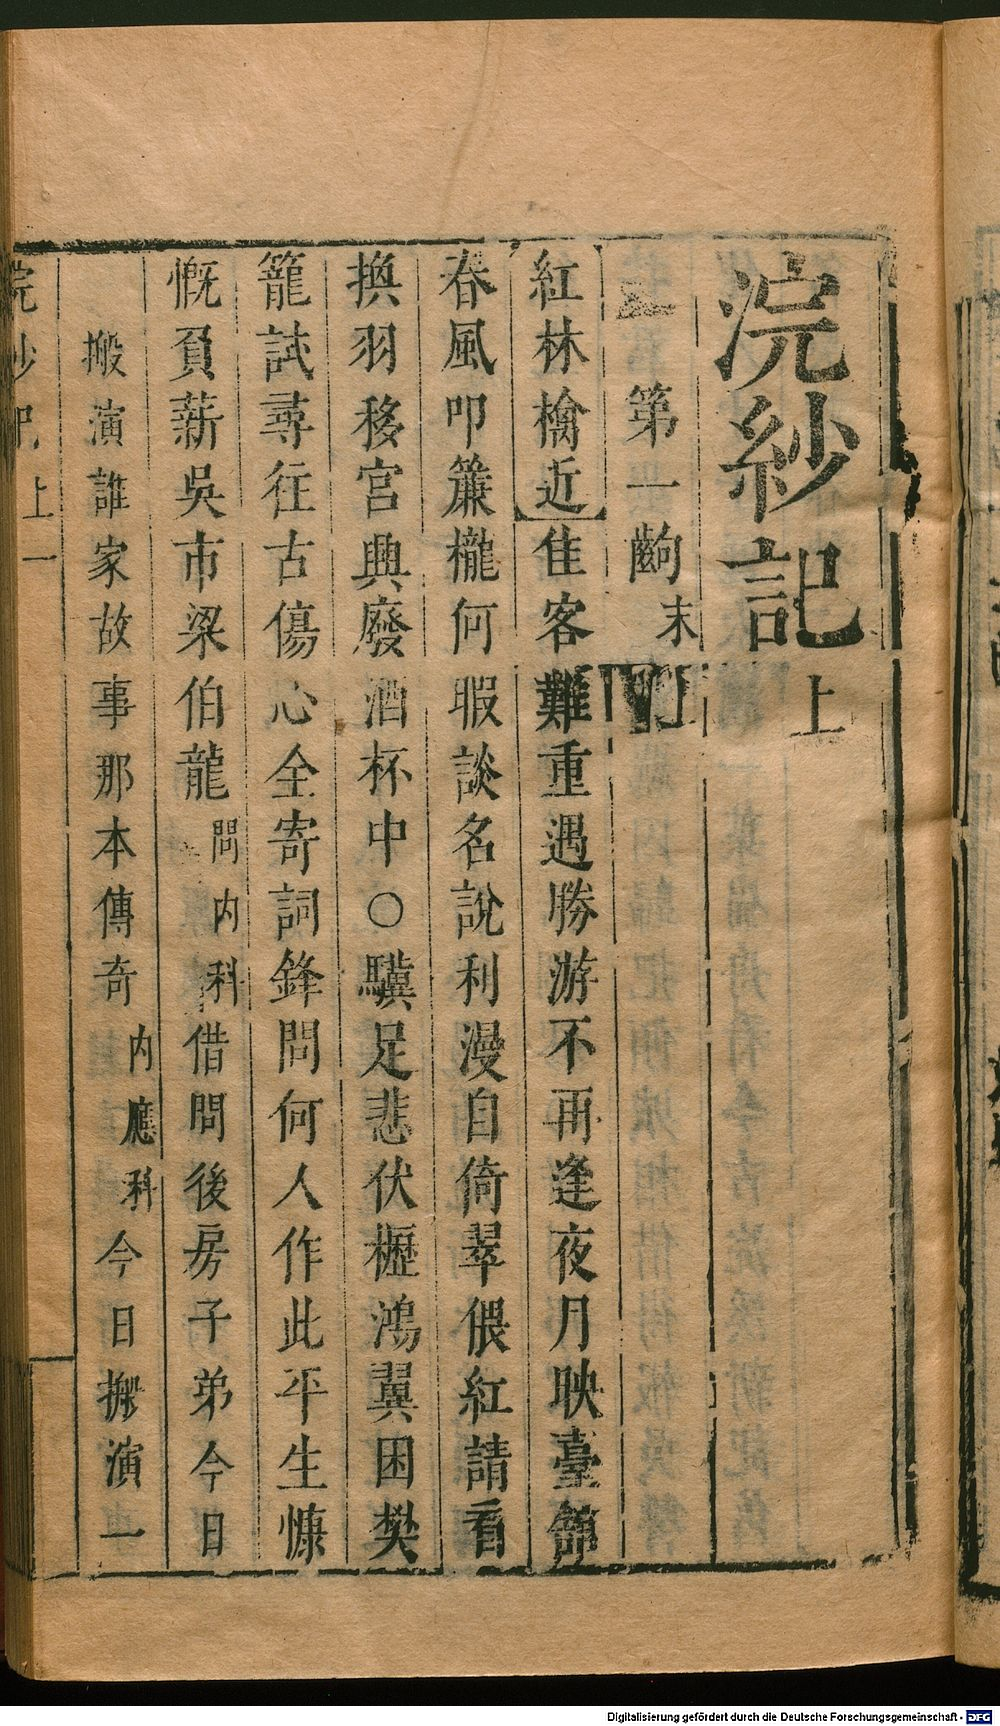 浣紗記上
第一齣末
紅林檎近佳客難重遇勝游不再逢夜月映臺館
春風叩簾櫳何暇談名說利漫自倚翠偎紅請看
換羽移宮興廢酒杯中○驥足悲伏櫪鴻翼困樊
籠試尋往古傷心全寄詞鋒問何人作此平生慷
慨負薪吳市梁伯龍問內科借問後房子弟今日
搬演誰家故事那本傳奇內應科今日搬演一
浣紗記上一
Digitalisierung gefördert durch die Deutsche Forschungsgemeinschaft - DFG